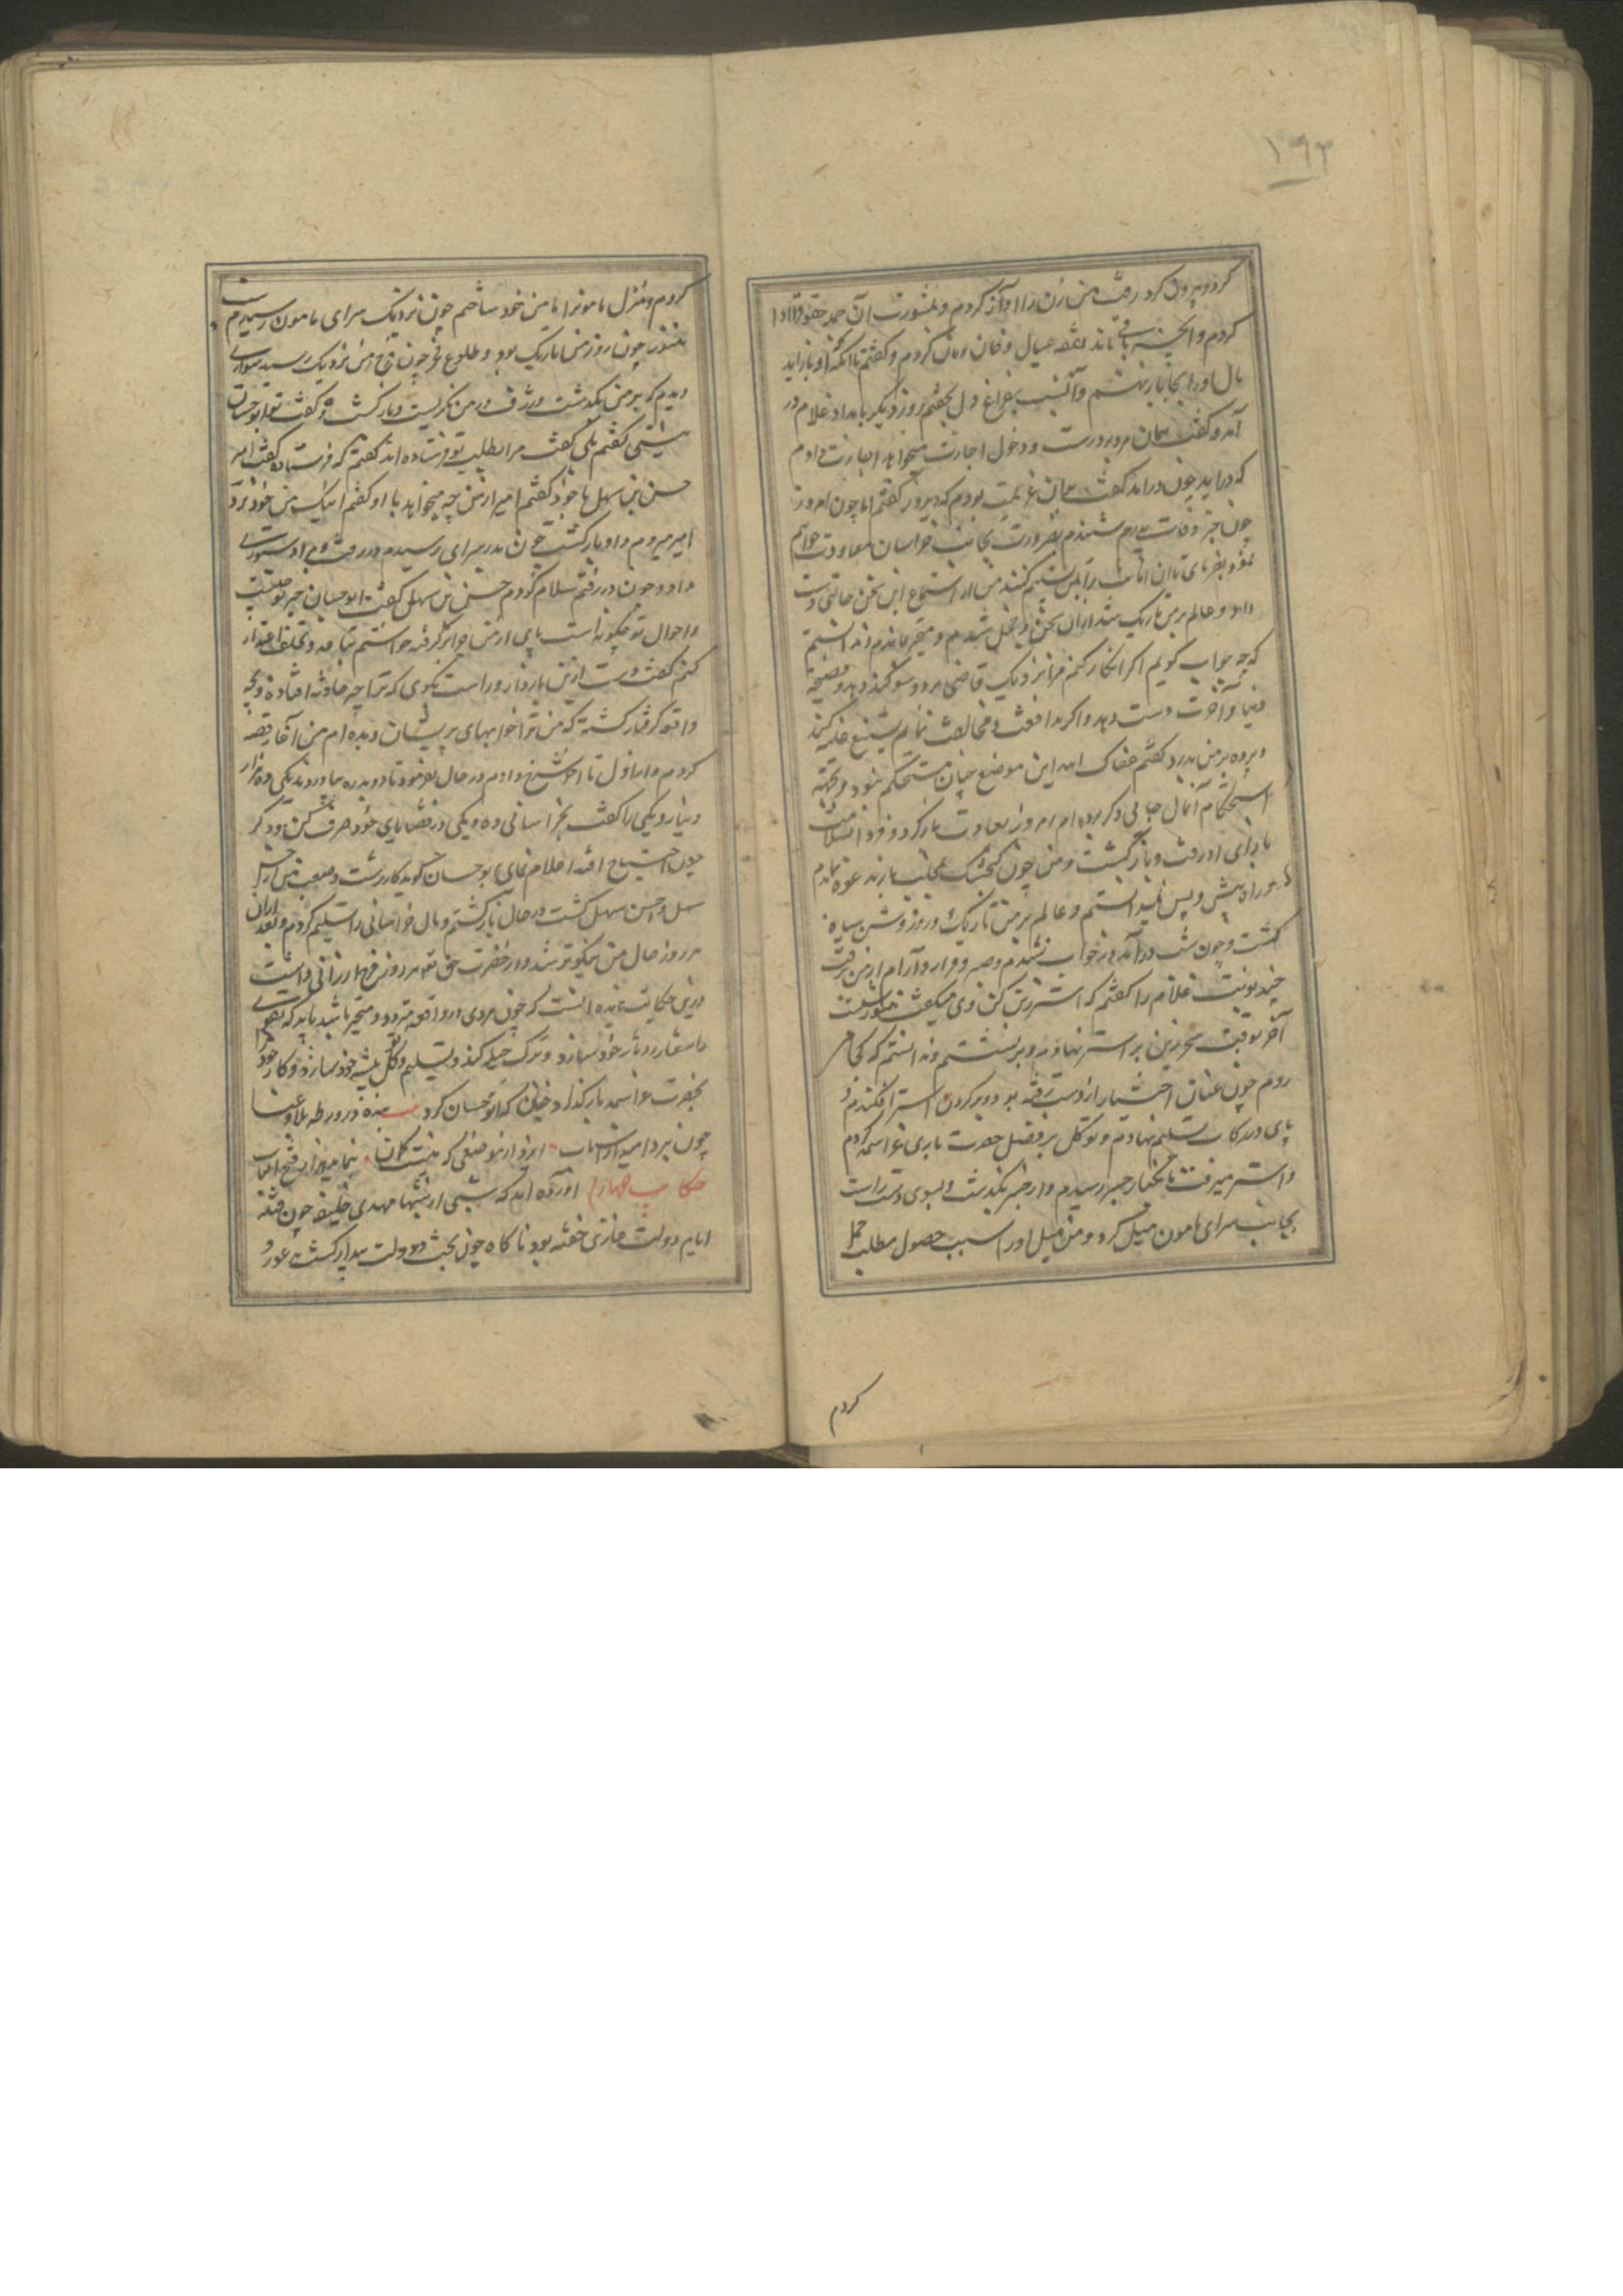 ١٩٢
کرد و بیرون کرد رفت من زن را آواز کردم و بمشورت آن جمله حقوق را ادا
کردم و آنچه باقی ماند نفقه عیال و خان و مان کردم و گفتم تا آنکه او باز آید
مال او را بجا باز نهم و آن شب بفراغ دل بخفتم روز دیگر بامداد غلام در
آمد و گفت همان مرد بر درست و دخول اجازت میخواهد اجازت دادم
که درآید چون درآمد گفت بران عزیمت بودم که دیروز گفتم اما چون امروز
چون خبر وفات پدرم شنیدم بضرورت بجانب خراسان معاودت خواهم
نمود بفرمای تا آن امانت را بمن تسلیم کنند من از استماع این سخن حالتی دست
داد و عالم بر من تاریک شد از آن سخن و خجل شدم و متحیر ماندم و ندانستم
که چه جواب گویم اگر انکار کنم مرا نزدیک قاضی برد و سوگند دهد و فضیحت
دنیا و آخرت دست دهد و اگر مدافعت و مخالفت نمایم تشنیع غلبه کند
و پرده بر من بدرد گفتم عفاک الله این موضع چنان مستحکم نبود و بجهت
استحکام آنمال جائی دگر برده ام امروز بسعادت بازگرد و فردا
بازآی او رفت و بازگشت و من چون گنجشک بمخلب باز بماندم
و راه پیش و پس نمیدانستم و عالم بر من تاریک و روز روشن سیاه
گشت و چون شب درآمد در خواب نشدم و صبر و قرار و آرام از من برفت
چند نوبت غلام را گفتم که استر زین کن وی میگفت هنوز شبست
آخر بوقت سحر زین بر استر نهاد و برنشستم و ندانستم که کجا می
روم چون عنان اختیار از دست رفته بود و بر گردن استر افکندم و
پای در رکاب تسلیم نهادم و توکل بر فضل حضرت باری عز اسمه کردم
و استر میرفت تا بکنار جسر رسیدم و از جسر بگذشت و بسوی دست راست
بجانب سرای مامون میل کرد و من میل او را سبب حصول مطلب حمل
کردم
کردم و منزل مامونرا مامن خود ساختم چون نزدیک سرای مامون رسیدم
هنوز چون روز من تاریک بود و طلوع فجر چون فرج من نزدیک رسید سواری
دیدم که بر من بگذشت و ژرف در من نگریست و بازگشت و گفت تو ابو حسان
نیستی گفتم بلی گفت مرا بطلب تو فرستاده اند گفتم که فرستاد گفت امیر
حسن بن سهل با خود گفتم امیر از من چه میخواهد با او گفتم اینک من خود نزد
امیر میروم و او بازگشت چون بدر سرای رسیدم در رفت و مرا دستوری
داد و چون در رفتم سلام کردم حسن بن سهل گفت ابو حسان خبر تو چیست
و احوال تو چگونه است پای از من چرا بازگرفته خواستم تا و تکلف اعتذار
کنم گفت دست ازین بازدار و راست بگوی که ترا چه حادثه افتاده و بچه
واقعه گرفتار گشته که من ترا خوابهای پریشان دیده ام من آغاز قصه
کردم و از اول تا آخر شرح دادم در حال بفرمود تا دو بدره بیاوردند یکی ده هزار
دینار و یکی را گفت بخراسانی ده و یکی در قضایای خود صرف کن و دگر
چون احتیاج افتد اعلام نمای ابو حسان گوید کار درشت و صعب من از
سهل و حسن سهل گشت در حال بازگشتم و مال خراسانی را تسلیم کردم و بعد ازان
هر روز حال من نیکوتر شد و از حضرت حق تعالی روزیها ارزانی داشت
درین حکایت فایده آنست که چون مردی در واقعه متردد و متحیر باشد باید که تقوی
را شعار و دثار خود سازد و ترک حیله کند و تسلیم و توکل پیشه خود سازد و کار خود
بحضرت عز اسمه بازگذارد چنان که ابو حسان کرد بنده در ورطه بلا و عنا
چون ببرد امید از اسباب ایزد از موضعی که نیست گمان بنماید فتح الباب
حکایت چهارم آورده اند که شبی از شبها مهدی خلیفه چون فتنه
ایام دولت خازی خفته بود ناگاه چون بخت دولت بیدار گشت